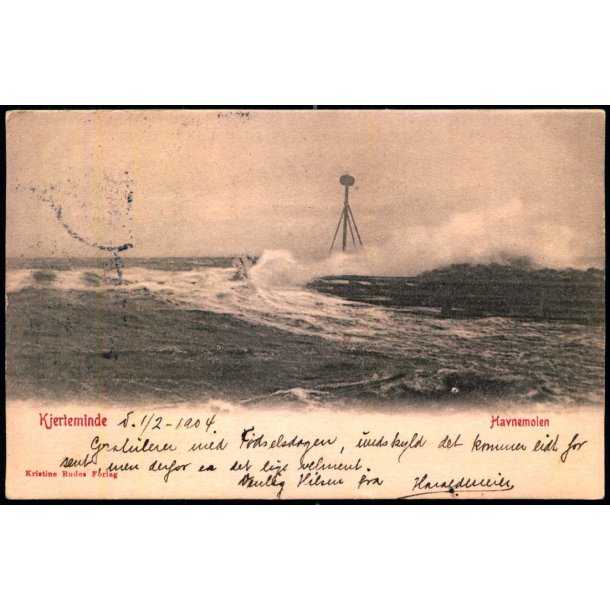 Kjerteminde d. 1/2-1904. Havnemolen
Gratulerer med Fødselsdagen, undskyld det kommer lidt for
sent, men derfor ea det lige velment.
Kristine Rudes Forlag
Venlig Hilsen fra